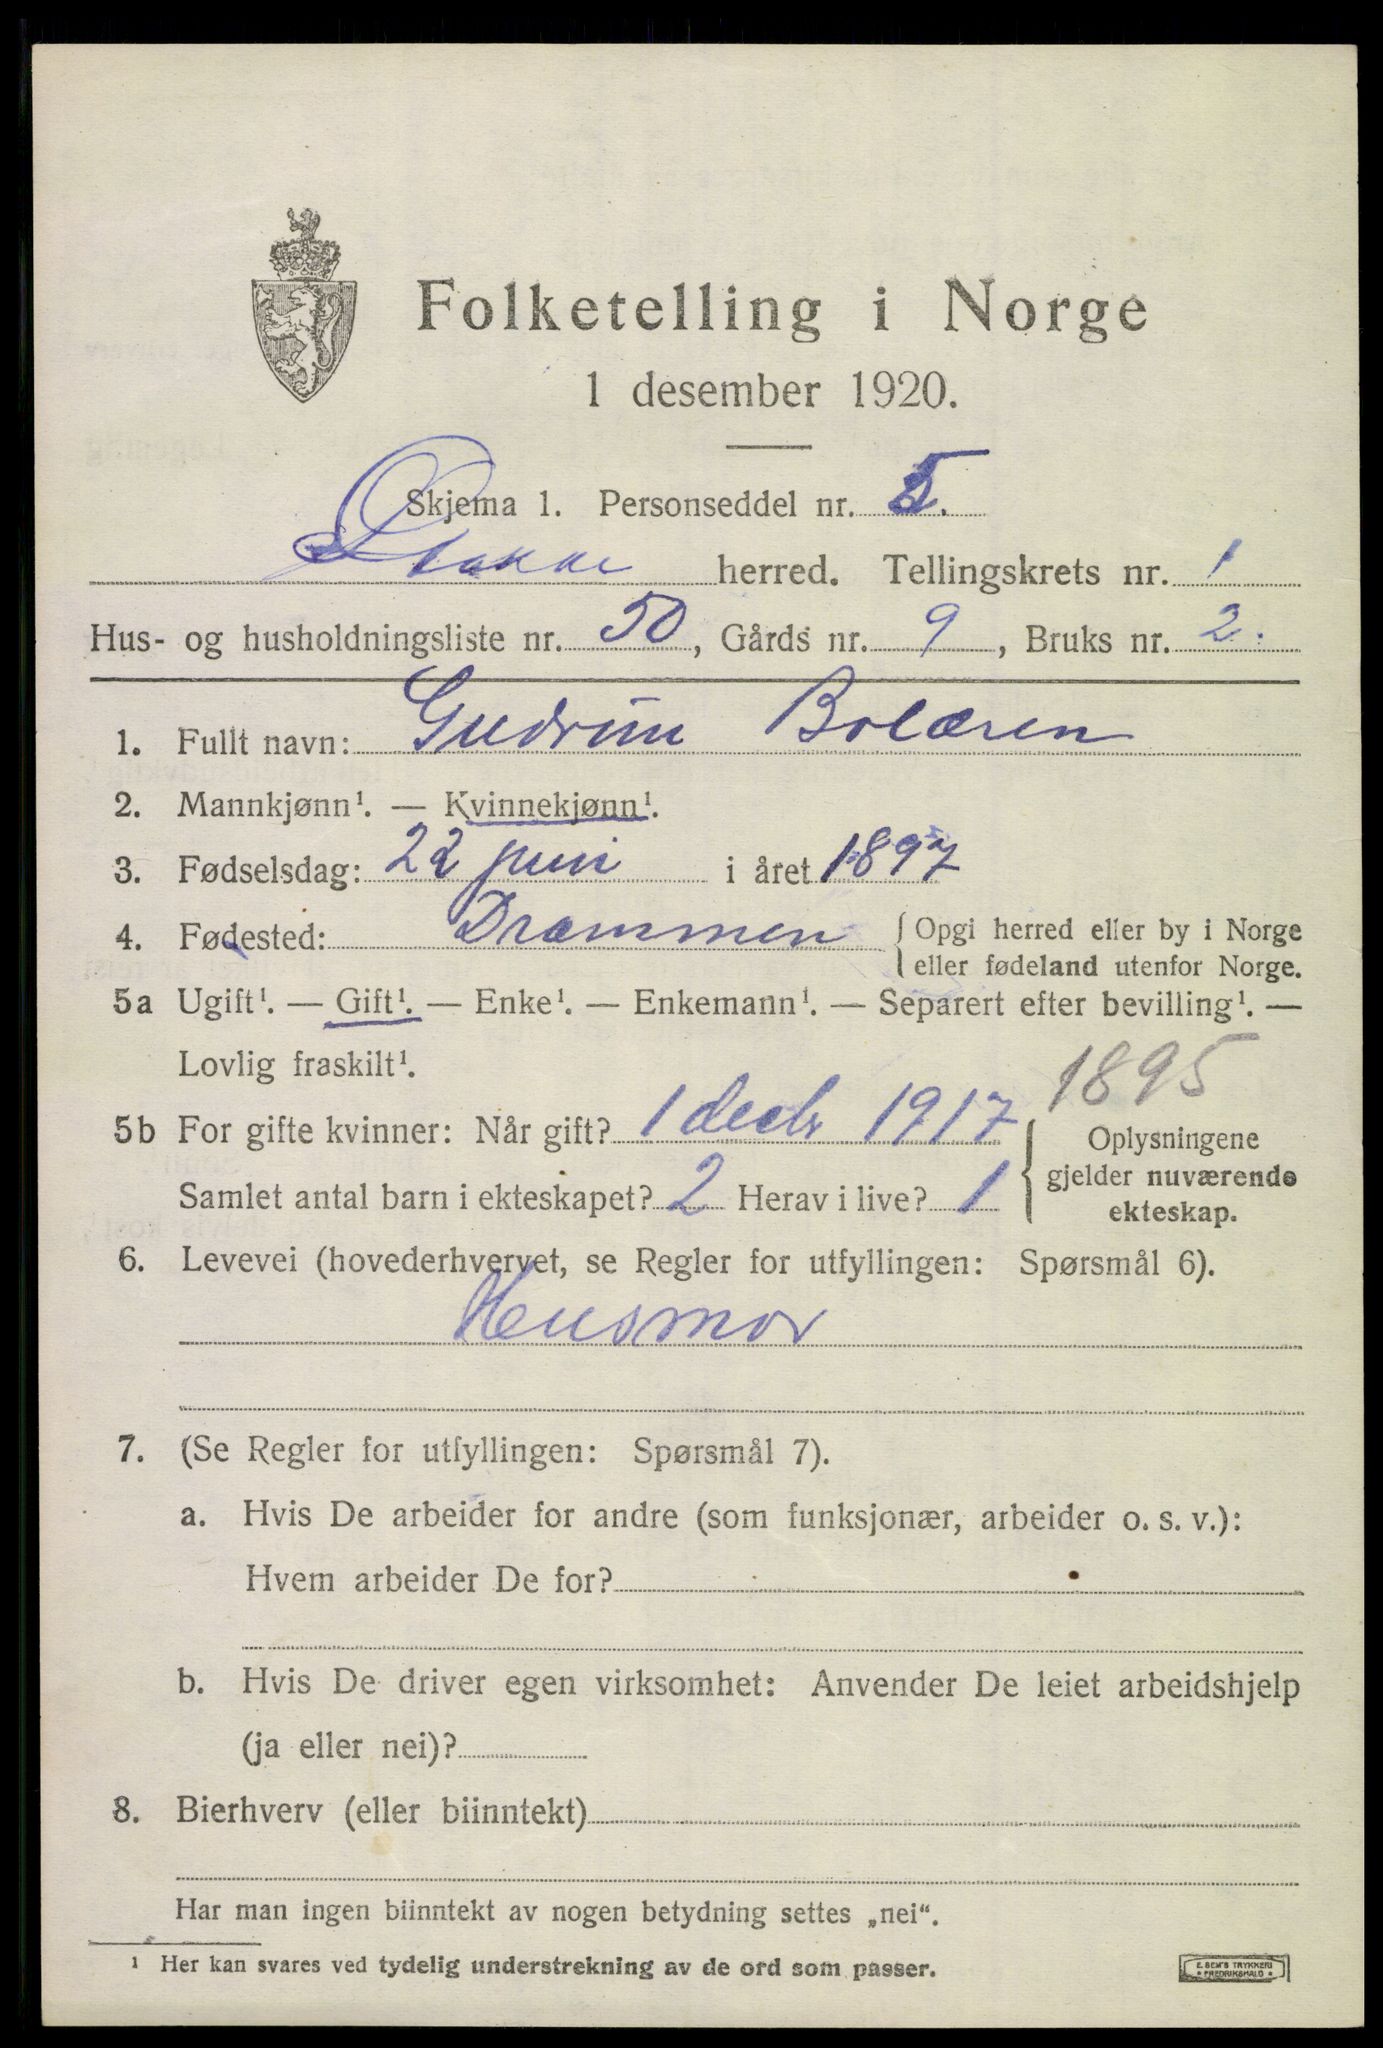 Folketelling i Norge
1 desember 1920.
Skjema 1. Personseddel nr. 5.
Stokke herred. Tellingskrets nr. 1
Hus- og husholdningsliste nr. 50, Gårds nr. 9, Bruks nr. 2.
1. Fullt navn: Gudrun Bolæren
2. Mannkjønn¹. — Kvinnekjønn¹.
3. Fødselsdag: 22 juni i året 1897
4. Fødested: Drammen { Opgi herred eller by i Norge
eller fødeland utenfor Norge.
5a Ugift¹. — Gift¹. — Enke¹. — Enkemann¹. — Separert efter bevilling¹. —
Lovlig fraskilt¹.
1895
5b For gifte kvinner: Når gift? 1 decbr 1917
Samlet antal barn i ekteskapet? 2 Herav i live? 1
{ Oplysningene
gjelder nuværende
ekteskap.
6. Levevei (hovederhvervet, se Regler for utfyllingen: Spørsmål 6).
Husmor
7. (Se Regler for utfyllingen: Spørsmål 7).
a. Hvis De arbeider for andre (som funksjonær, arbeider o. s. v.):
Hvem arbeider De for?
b. Hvis De driver egen virksomhet: Anvender De leiet arbeidshjelp
(ja eller nei)?
8. Bierhverv (eller biinntekt)
Har man ingen biinntekt av nogen betydning settes „nei“.
¹ Her kan svares ved tydelig understrekning av de ord som passer.
E. SEM'S TRYKKERI
FREDRIKSHALD